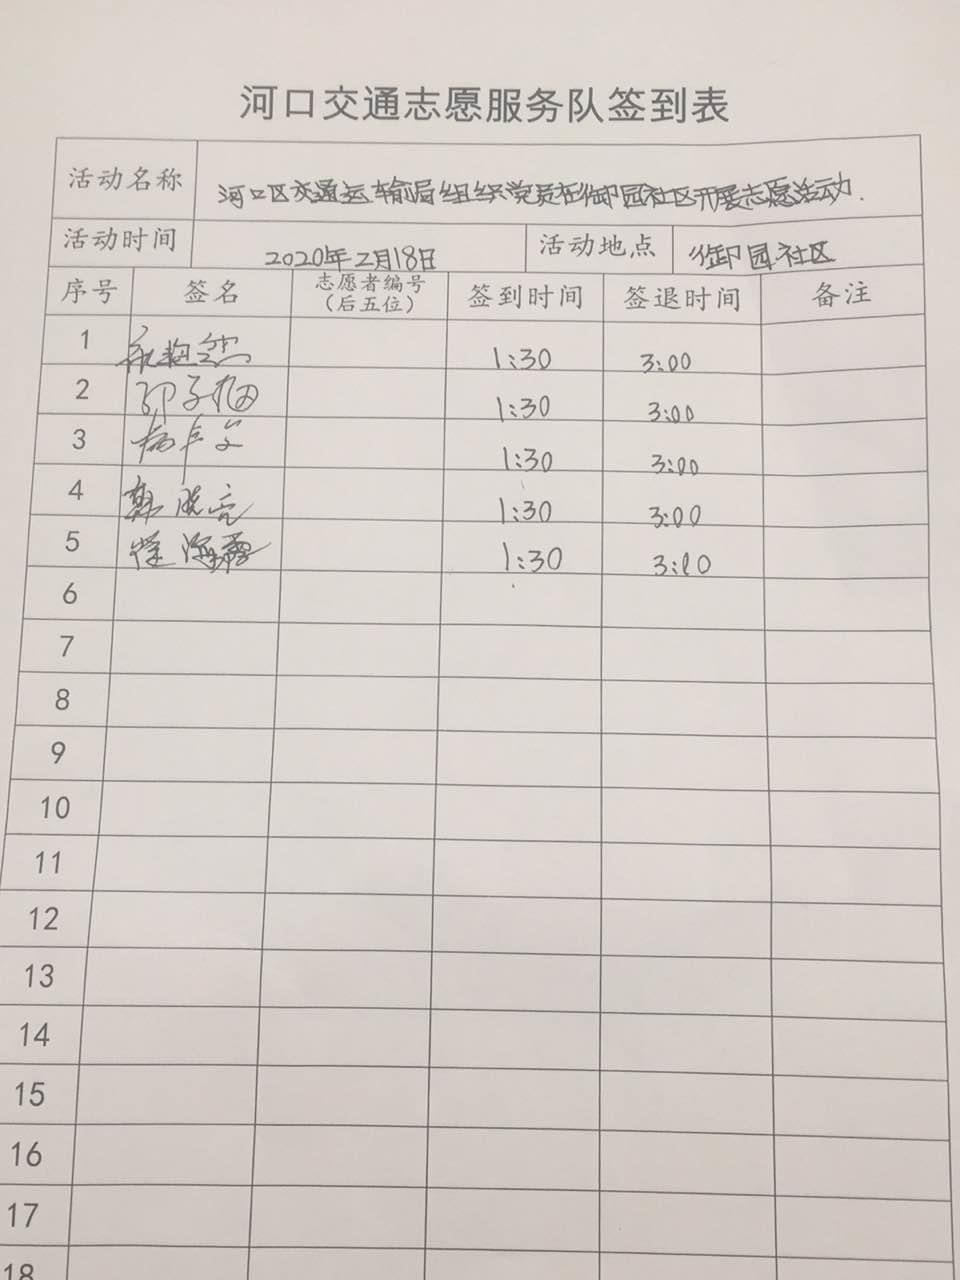 河口交通志愿服务队签到表
活动名称 河口区交通运输局组织党员在御园社区开展志愿活动.
活动时间 2020年2月18日 活动地点 御园社区
序号 签名 志愿者编号（后五位） 签到时间 签退时间 备注
1 1:30 3:00
2 1:30 3:00
3 1:30 3:00
4 韩晓亮 1:30 3:00
5 1:30 3:00
6
7
8
9
10
11
12
13
14
15
16
17
18